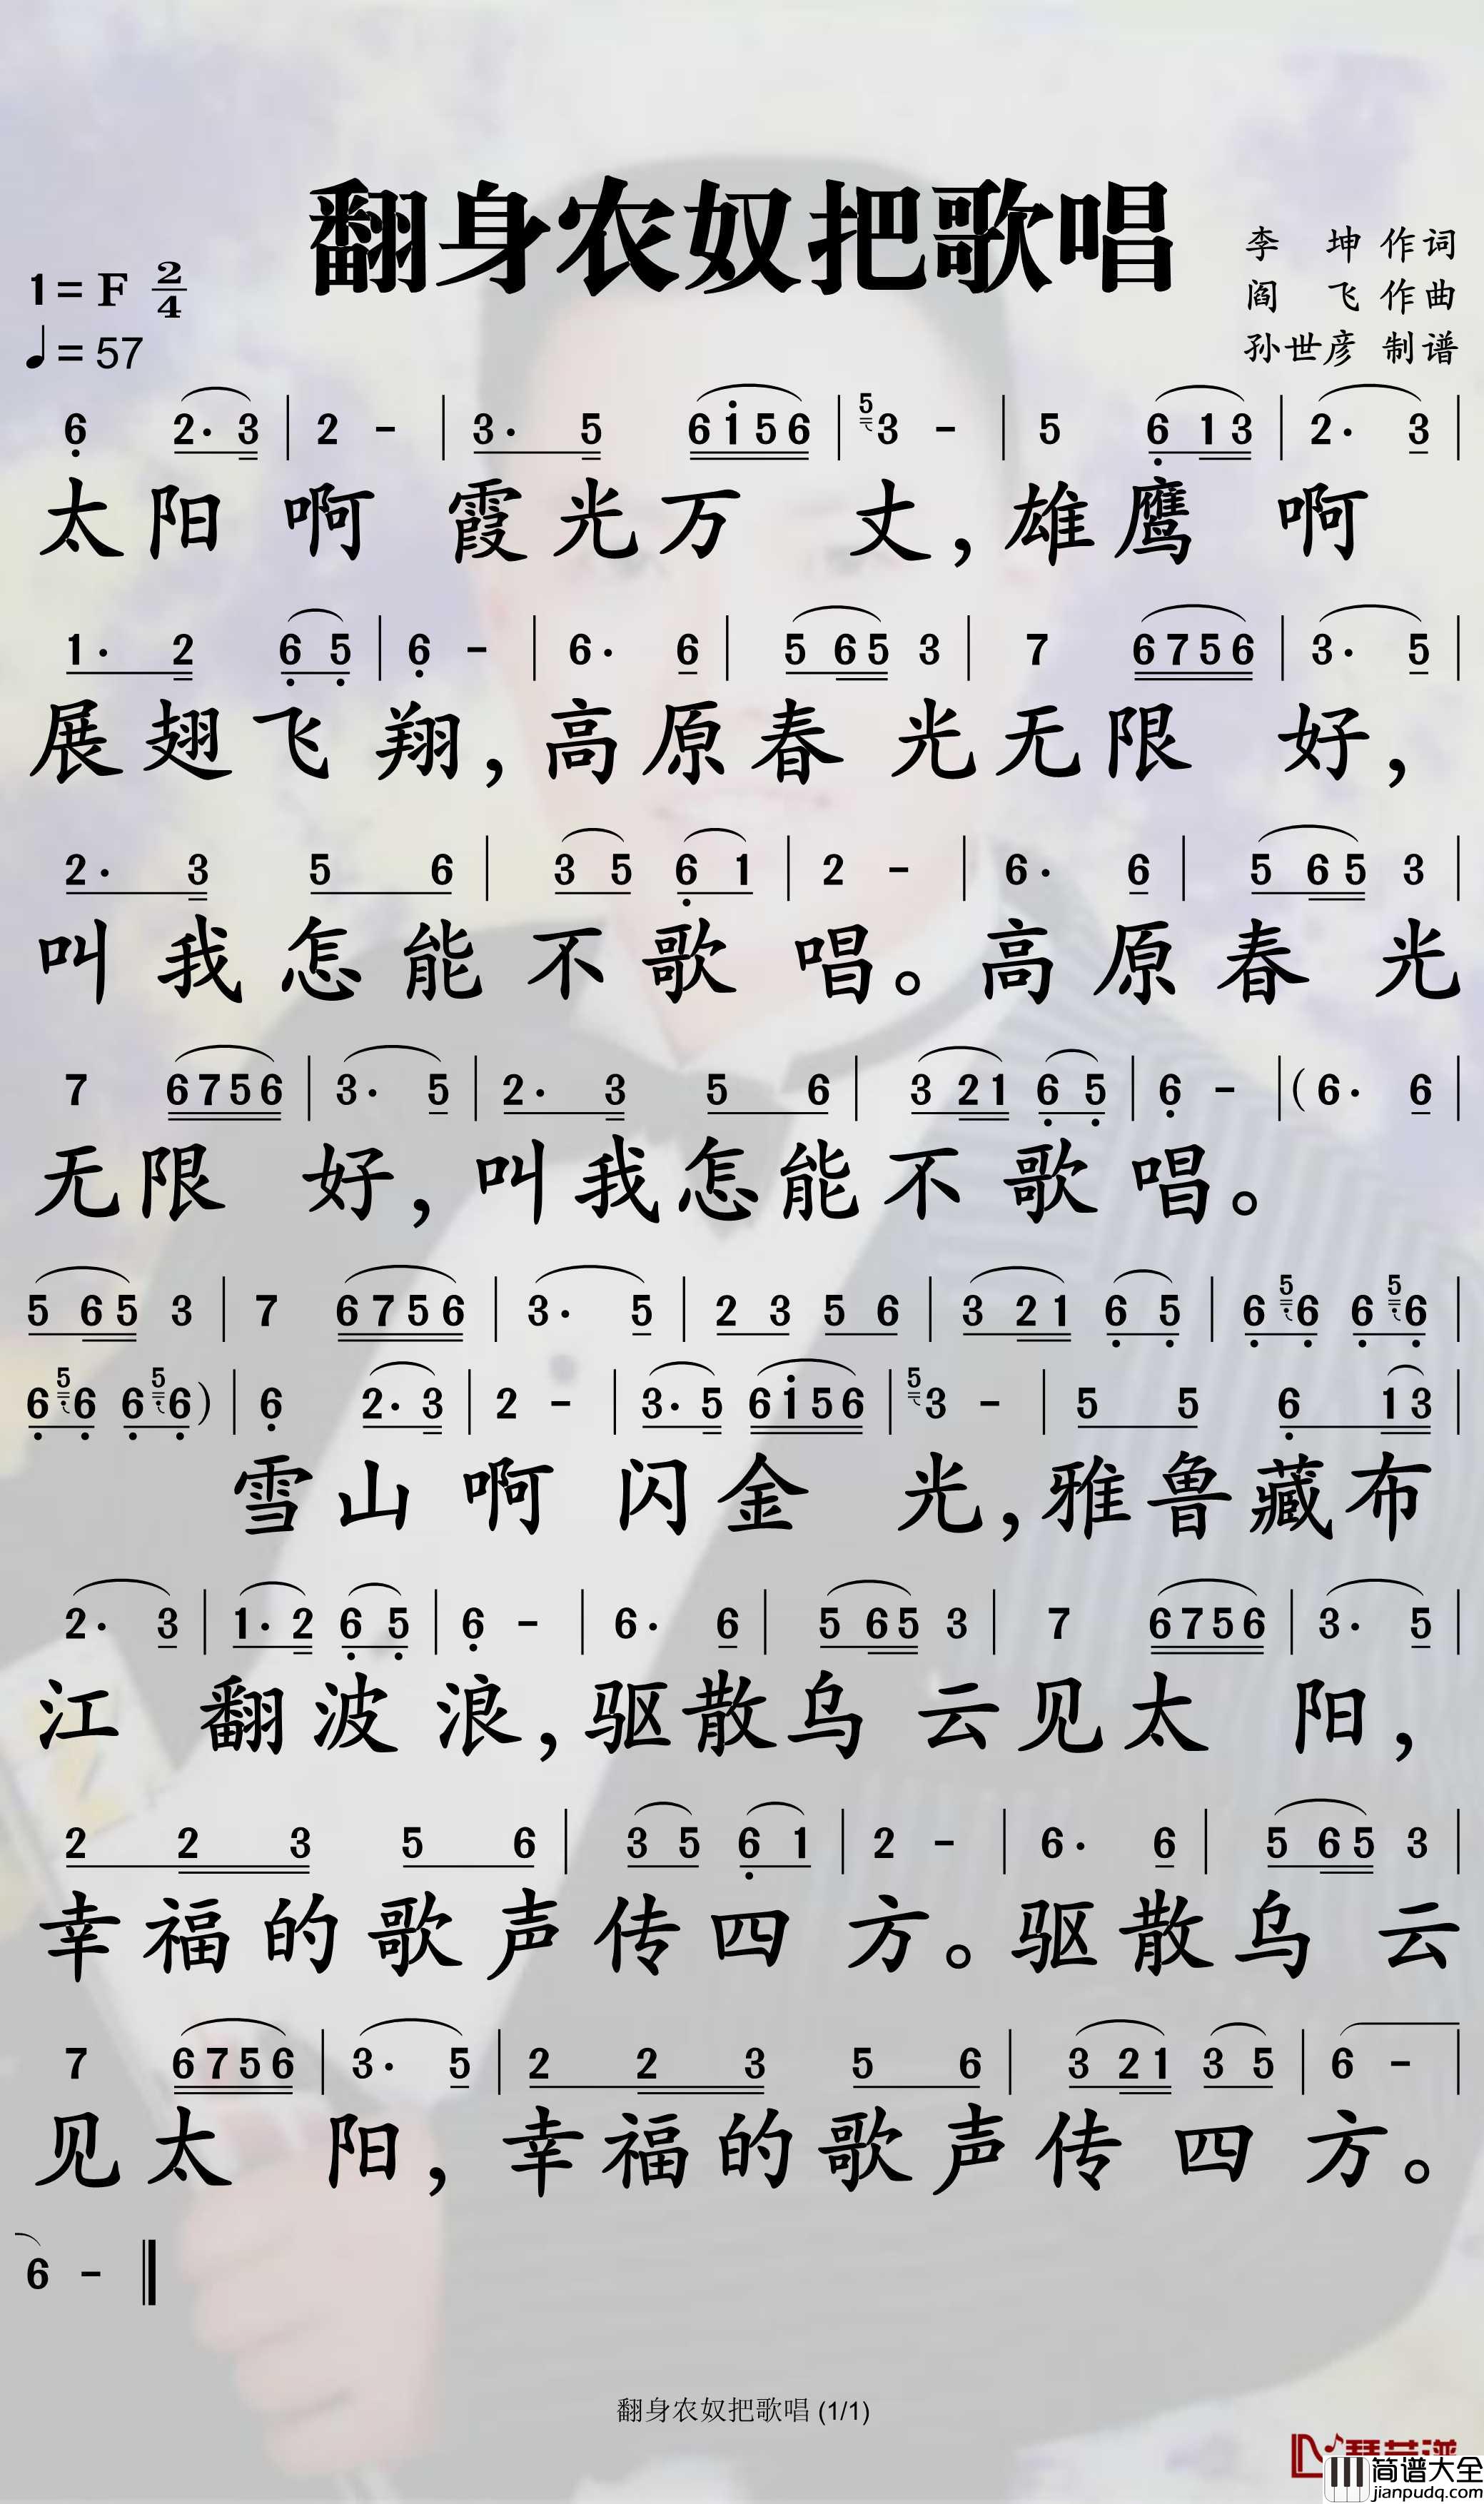 翻身农奴把歌唱
李 坤 作词
1=F 2/4
阎 飞 作曲
♩=57
孙世彦 制谱
6̣ 2· 3 | 2 - | 3· 5 6i56 | 5 3 - | 5 6̣ 13 | 2· 3 |
太阳 啊 霞光万 丈,雄鹰 啊
1· 2 6̣ 5̣ | 6̣ - | 6· 6 | 5 65 3 | 7 6756 | 3· 5 |
展翅飞 翔,高原春 光无限 好,
2· 3 5 6 | 3 5 6̣ 1 | 2 - | 6· 6 | 5 65 3 |
叫我怎能不歌 唱。高原春光
7 6756 | 3· 5 | 2· 3 5 6 | 3 21 6̣ 5̣ | 6̣ - | (6· 6 |
无限 好,叫我怎能不歌 唱。
5 65 3 | 7 6756 | 3· 5 | 2 3 5 6 | 3 21 6̣ 5̣ | 6̣ 5 6̣ 6̣ 5 6̣ |
6̣ 5 6̣ 6̣ 5 6̣) | 6̣ 2· 3 | 2 - | 3· 5 6i56 | 5 3 - | 5 5 6̣ 13 |
雪山 啊 闪金 光,雅鲁藏布
2· 3 | 1· 2 6̣ 5̣ | 6̣ - | 6· 6 | 5 65 3 | 7 6756 | 3· 5 |
江 翻波 浪,驱散乌 云见太 阳,
2 2 3 5 6 | 3 5 6̣ 1 | 2 - | 6· 6 | 5 65 3 |
幸福的歌声传四 方。驱散乌云
7 6756 | 3· 5 | 2 2 3 5 6 | 3 21 3 5 | 6 - |
见太 阳,幸福的歌声传四方。
6 - ‖
翻身农奴把歌唱 (1/1)
简谱大全
jianpudq.com